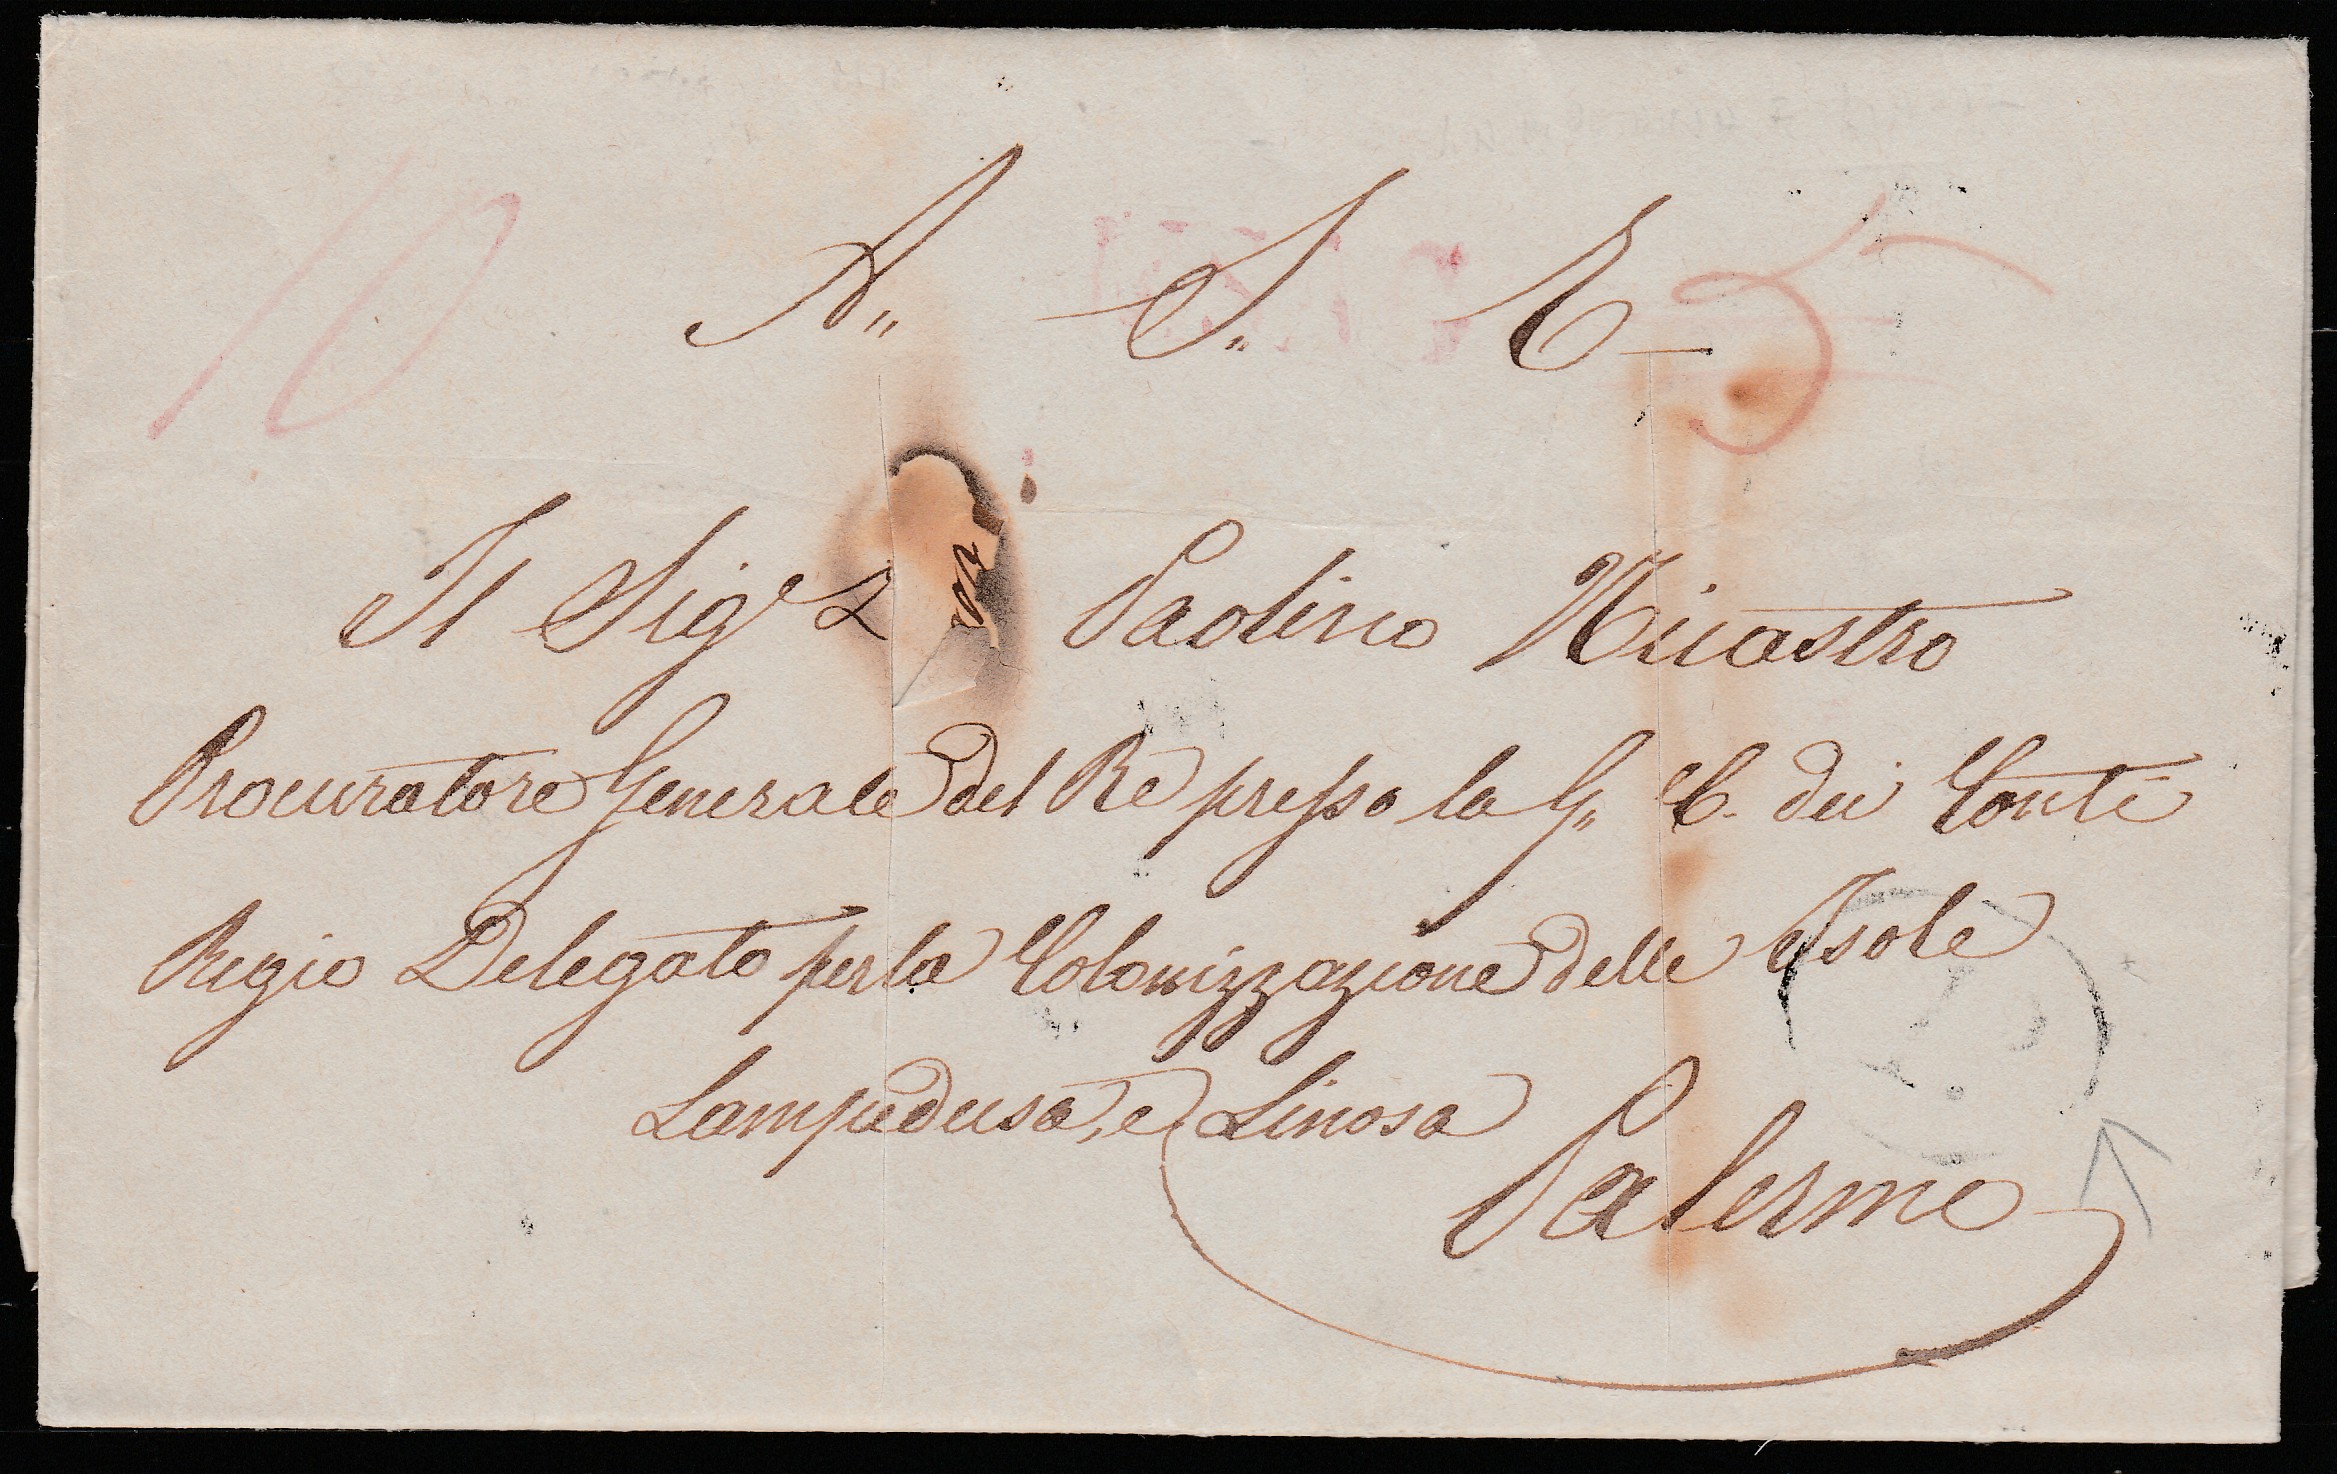 10
A„ S„ E 5
Il Sig.r D.n Paolino Nicastro
Procuratore Generale del Re presso la G„ C. dei Conti
Regio Delegato per la Colonizzazione delle Isole
Lampedusa, e Linosa
Palermo